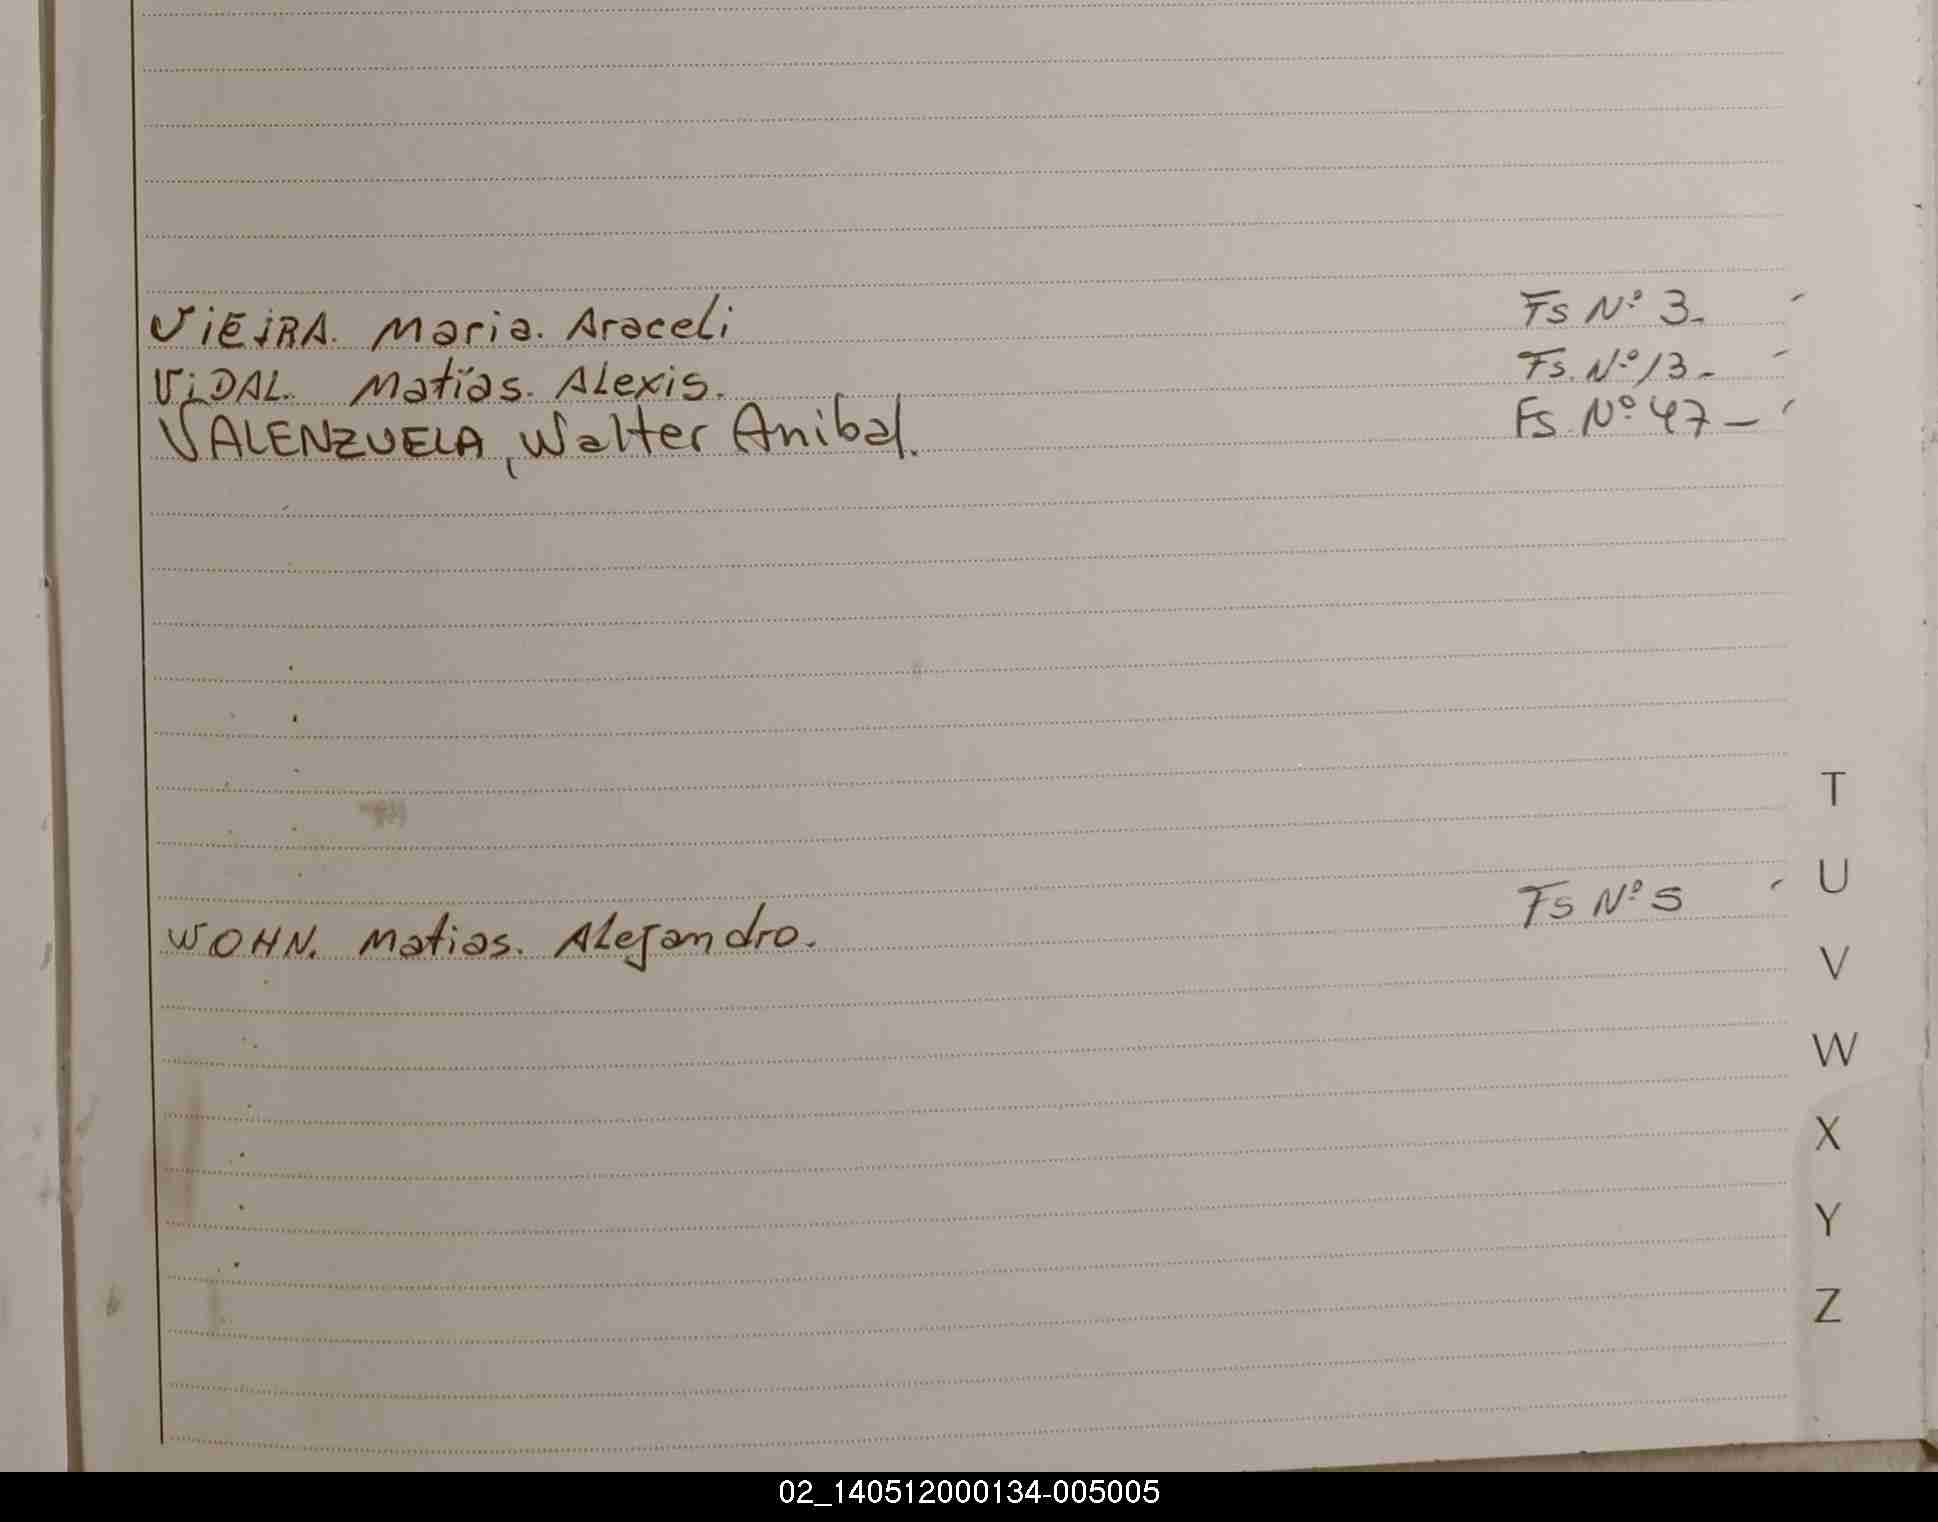 VIEIRA. Maria. Araceli Fs Nº 3-
VIDAL. Matías. ALexis. Fs. Nº 13-
VALENZUELA, Walter Anibal. Fs. Nº 47 -
WOHN. Matias. ALejandro. Fs Nº 5
T
U
V
W
X
Y
Z
02_140512000134-005005